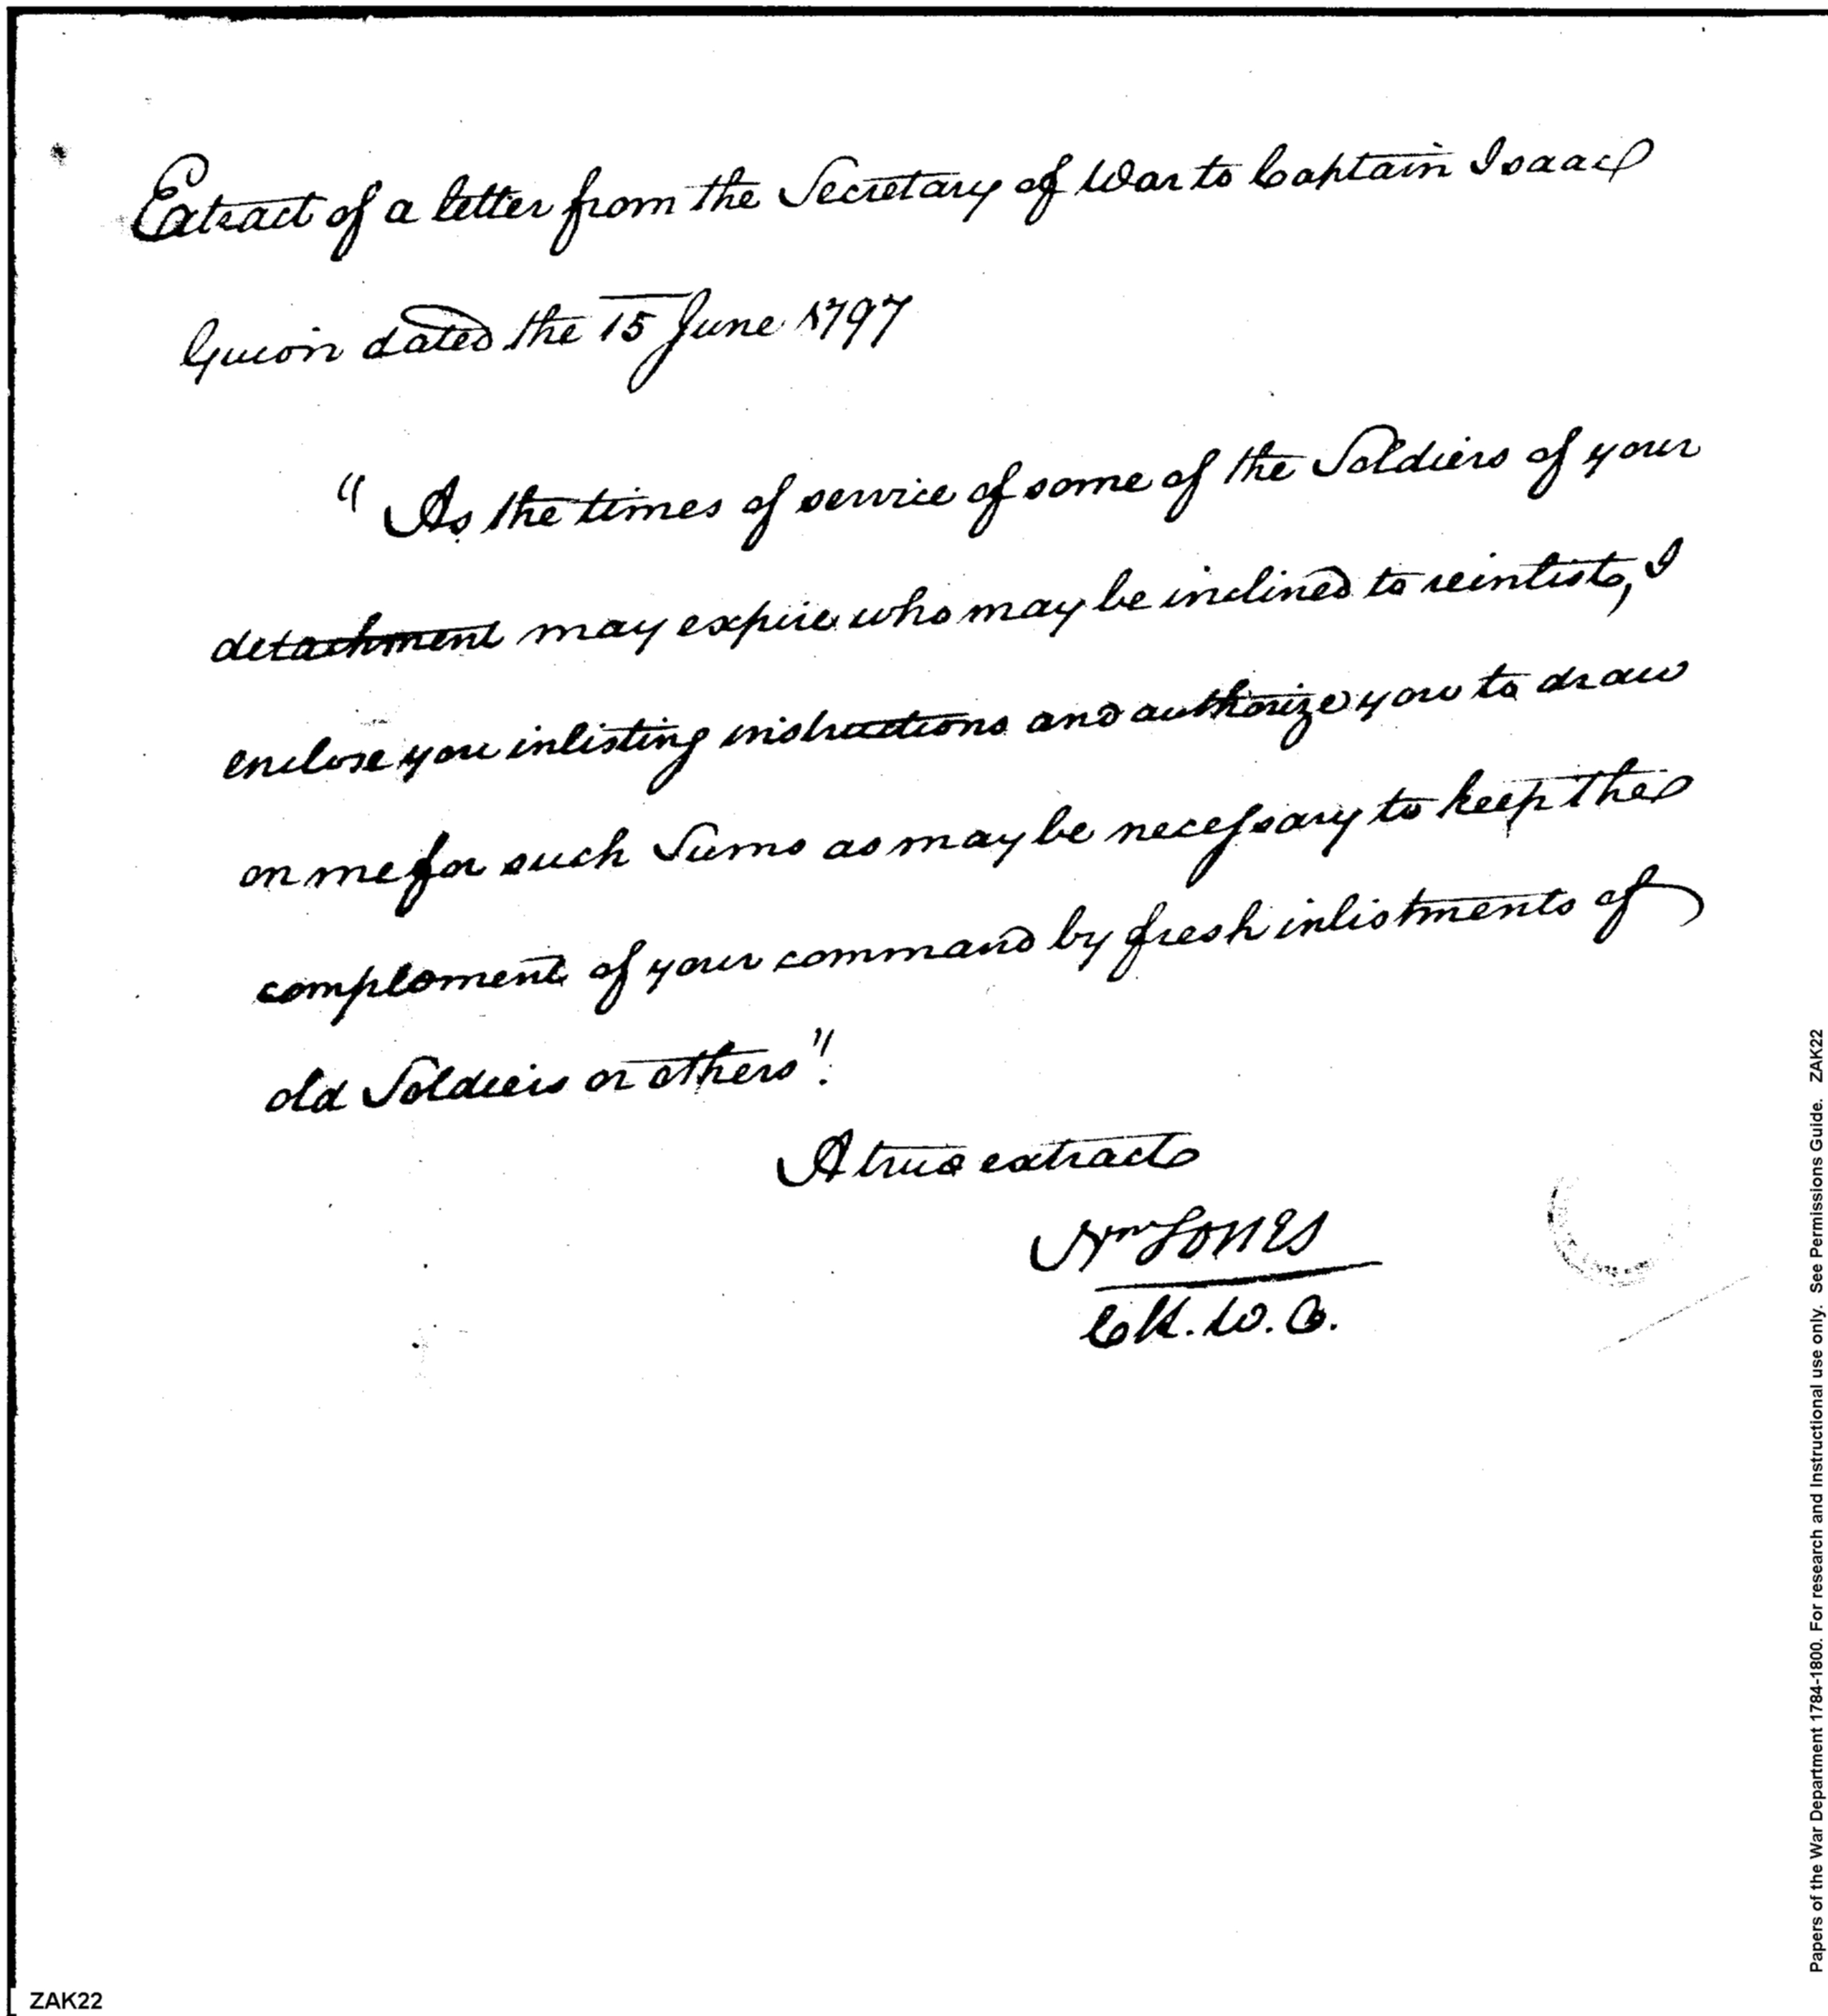 Extract of a letter from the Secretary of War to Captain Isaac
Guion dated the 15 June 1797
" As the times of service of some of the Soldiers of your
detachment may expire who may be inclined to reinlist, I
enclose you inlisting instructions and authorize you to draw
on me for such Sums as may be necessary to keep the
complement of your command by fresh inlistments of
old Soldiers or others".
A true extract
Wm Jones
Ck. W. O.
Papers of the War Department 1784-1800. For research and Instructional use only. See Permissions Guide. ZAK22
ZAK22